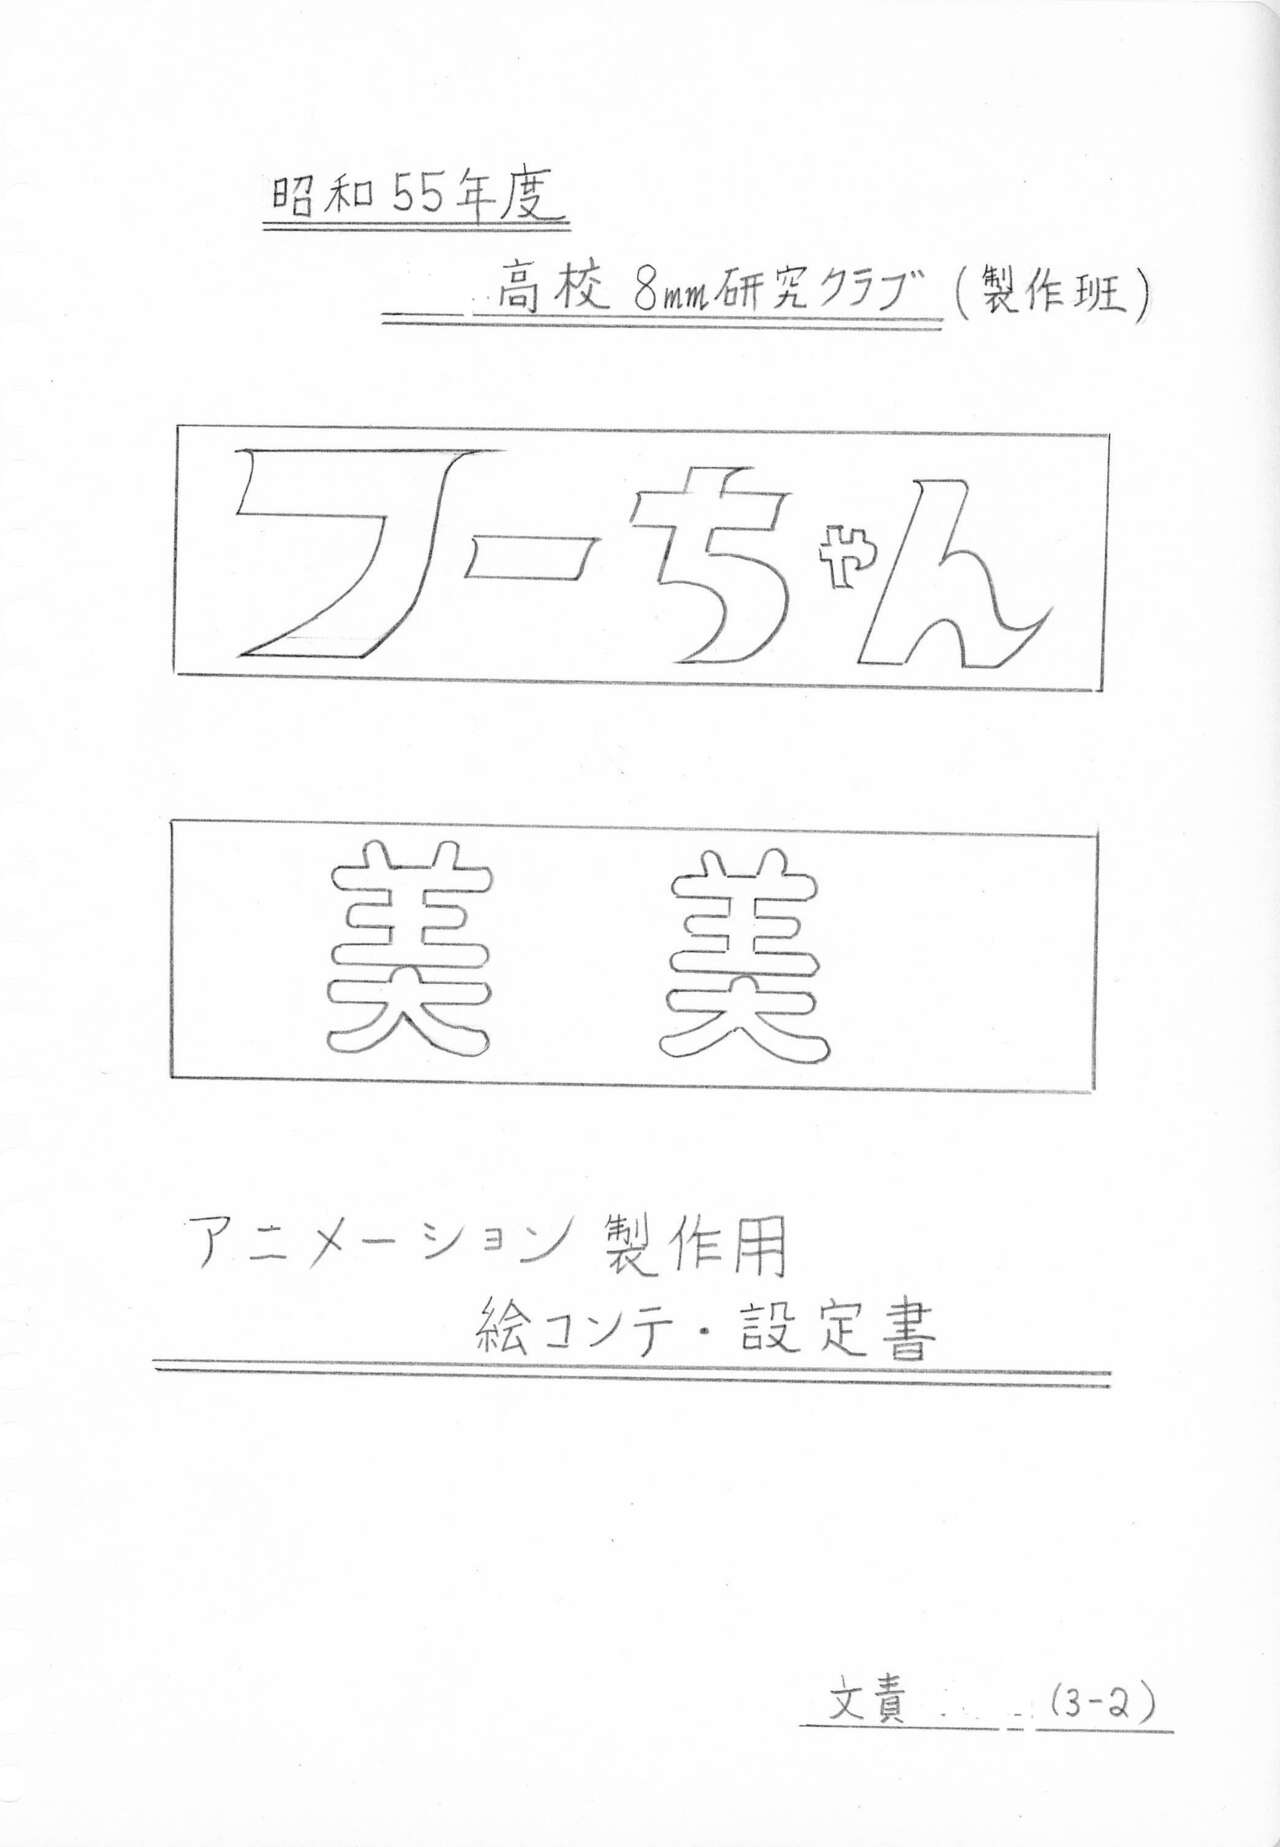 昭和55年度
高校 8mm研究クラブ (製作班)
フーちゃん
美 美
アニメーション 製作用
絵コンテ・設定書
文責 (3-2)